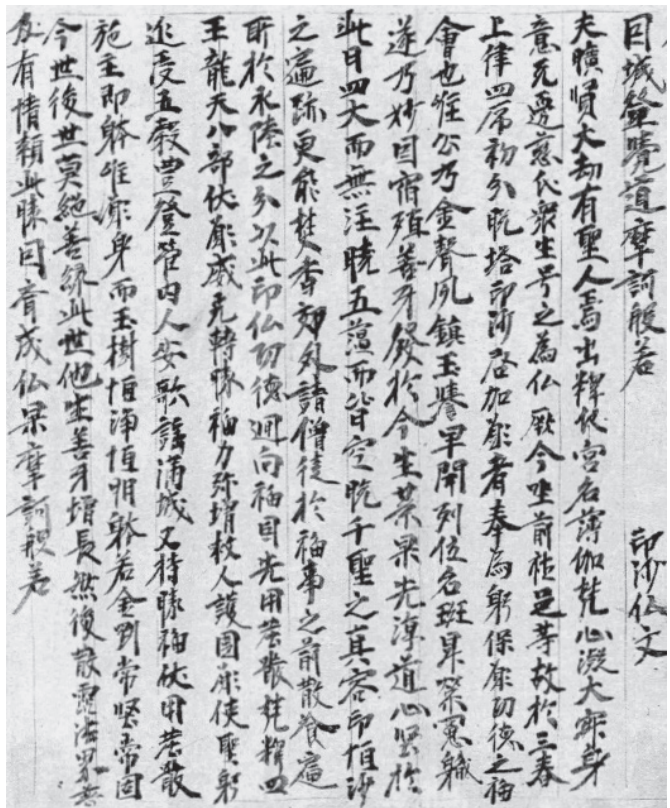 因城登覺道摩訶般若
印沙仏文
夫曠賢大劫有聖人焉出釋氏宮名薄伽梵心凝大寂身
意无邊慈氏衆生号之為仏厥今坐前社邑等故於三春
上律四序初分脱塔印沙啓加願者奉為躬保願功德之福
會也惟公乃金聲夙鎮玉譽早開列位名班昇榮冕職
遂乃妙因宿殖善牙發於今生業果先淳道心堅於
此日四大而無注曉五蘊而皆空脱千聖之真容印恒沙
之遍跡更能焚香郊外請僧徒於福事之前散食遍
所於水陸之分以此印仏功德迴向福因先用莊嚴梵釋四
王龍天八部伏願威光轉勝福力弥增救人護國願使聖躬
延受五穀豊登管內人安歌謠滿城又持勝福伏用莊嚴
施主即躰唯願身而玉樹恒淨恒明躰若金剛常堅常固
今世後世莫絕善緣此世他生善牙增長然後散霑法界共
及有情賴此勝因齊成仏果摩訶般若